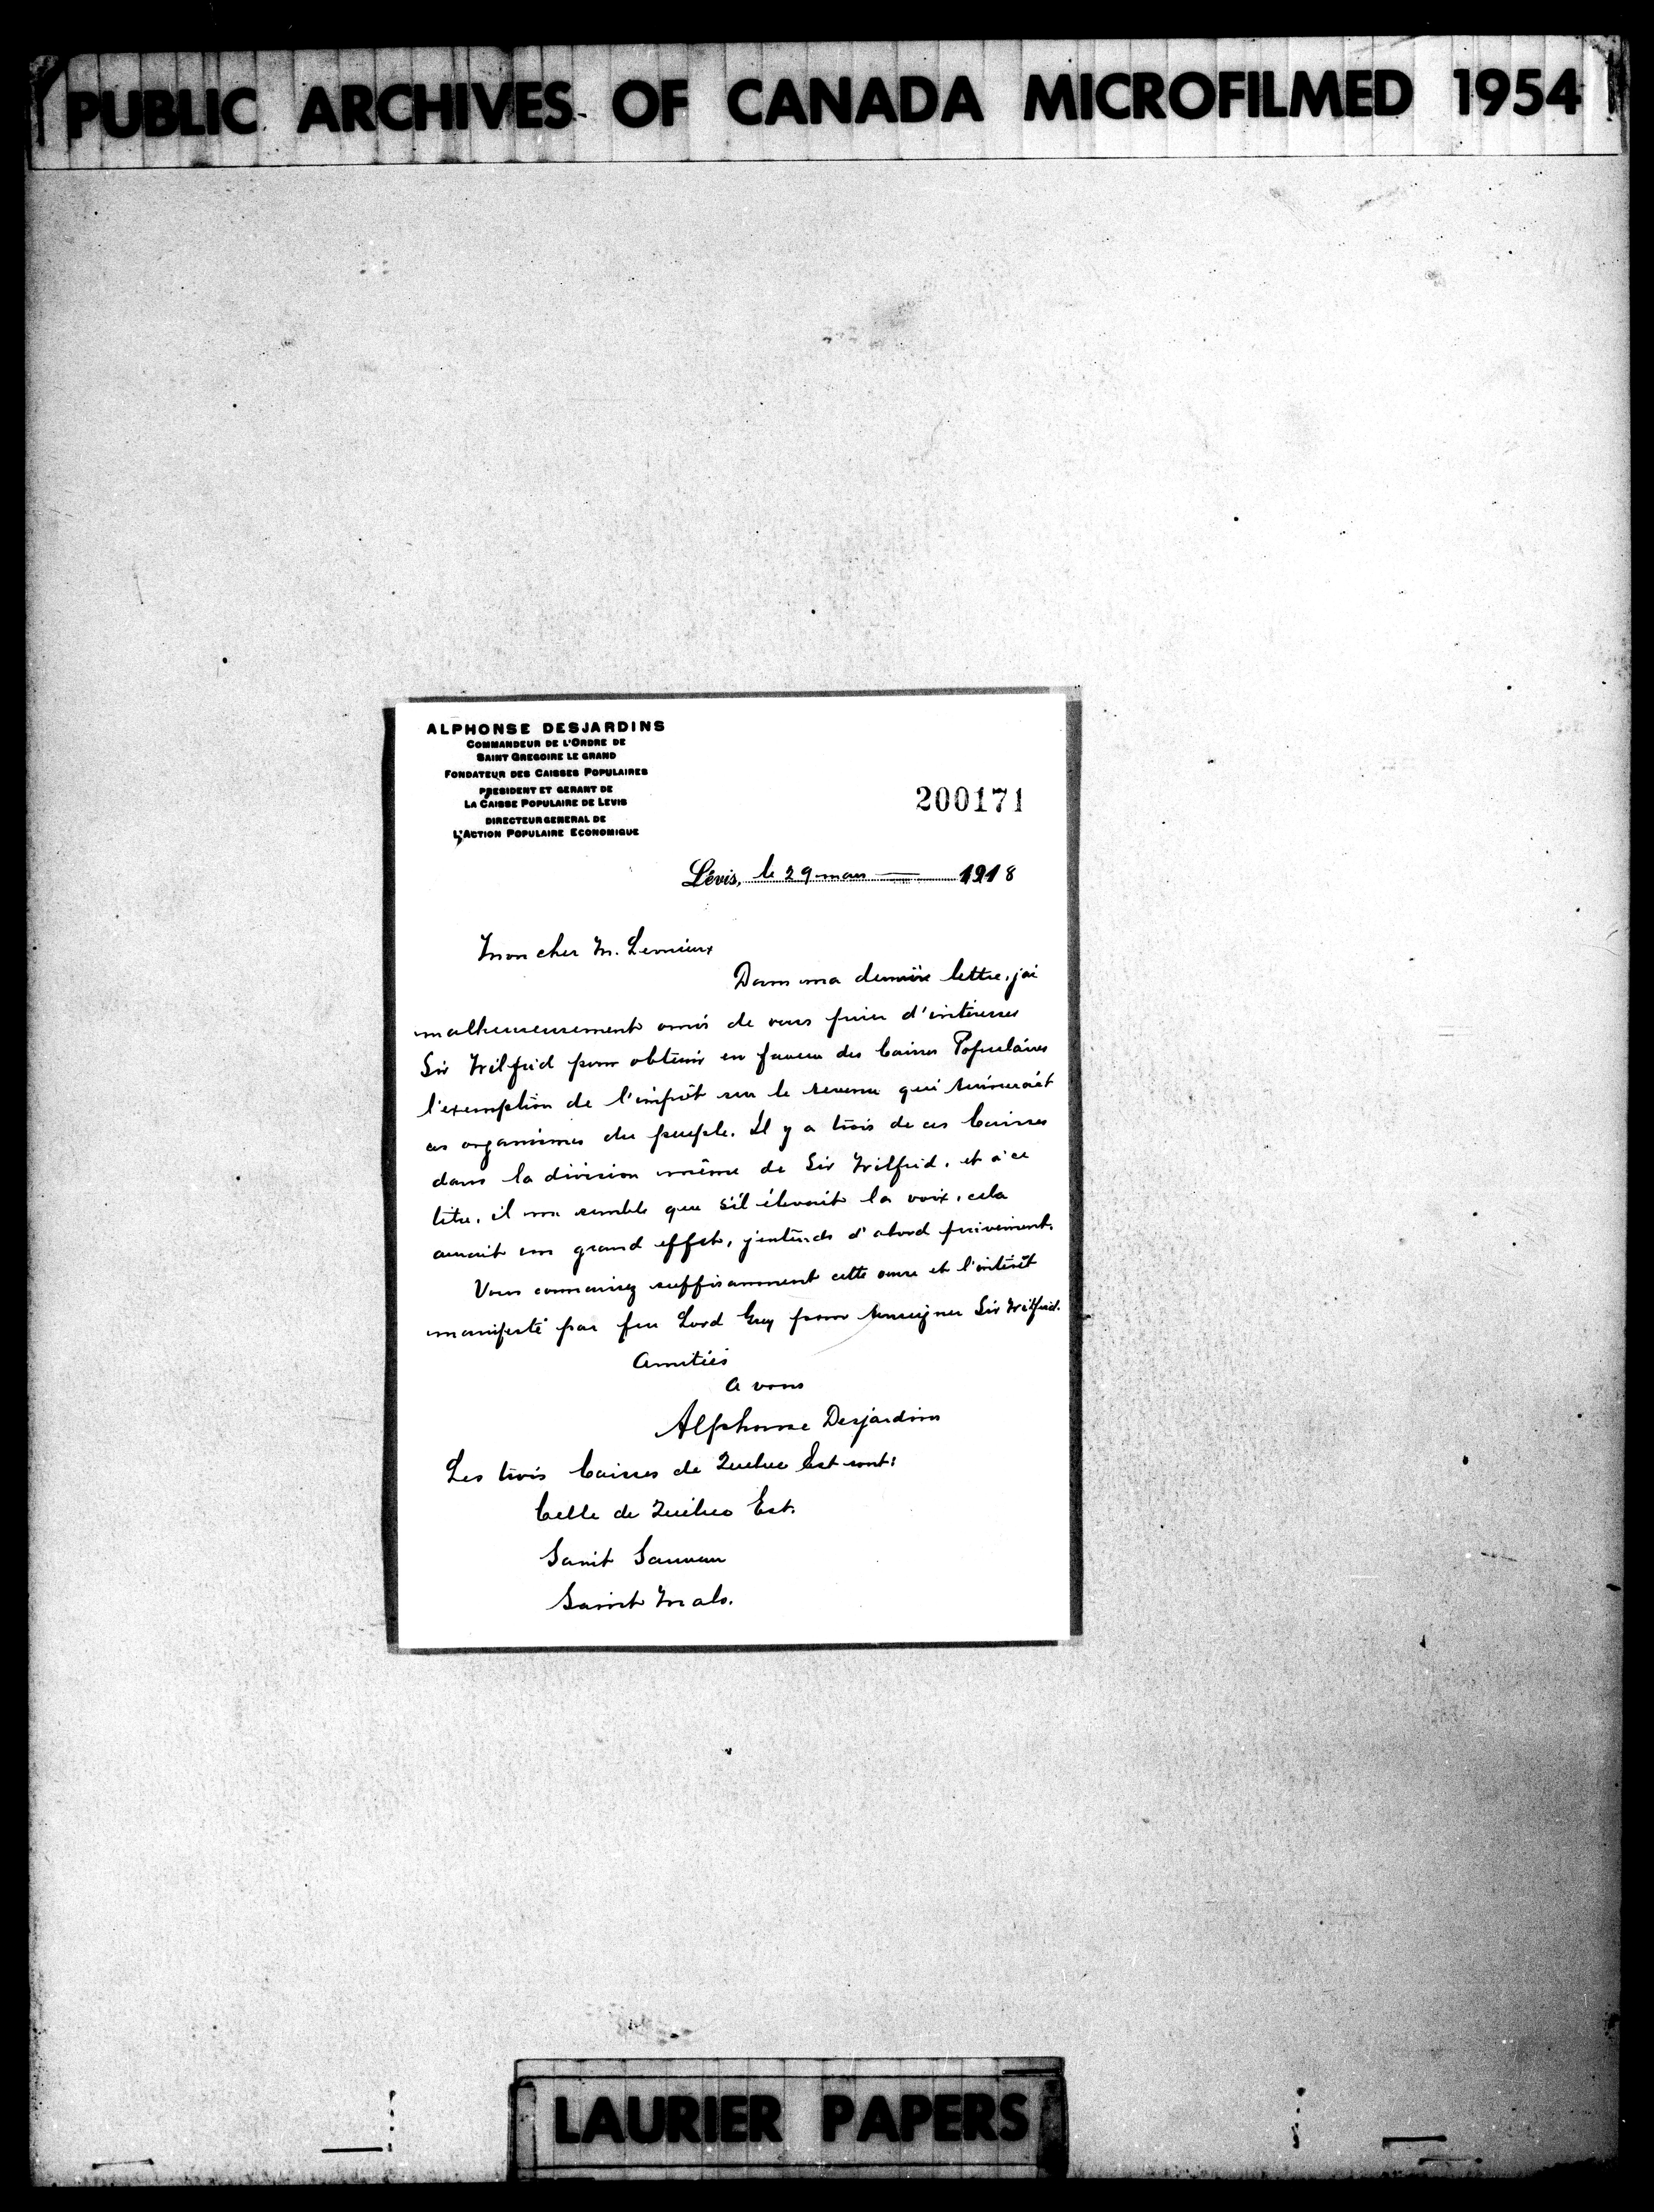 PUBLIC ARCHIVES OF CANADA MICROFILMED 1954
ALPHONSE DESJARDINS
COMMANDEUR DE L'ORDRE DE
SAINT GREGOIRE LE GRAND
FONDATEUR DES CAISSES POPULAIRES
PRESIDENT ET GERANT DE
LA CAISSE POPULAIRE DE LEVIS
DIRECTEUR GENERAL DE
L'ACTION POPULAIRE ECONOMIQUE
200171
Lévis, le 29 mars 1918
Mon cher M. Lemieux
Dans ma dernière lettre, j'ai
malheureusement omis de vous prier d'intéresser
Sir Wilfrid pour obtenir en faveur des Caisses Populaires
l'exemption de l'impôt sur le revenu qui ruinerait
ces organismes du peuple. Il y a trois de ces Caisses
dans la division même de Sir Wilfrid, et à ce
titre, il me semble que s'il élevait la voix, cela
aurait un grand effet, j'entends d'abord privément.
Vous connaissez suffisamment cette œuvre et l'intérêt
manifesté par feu Lord Grey pour renseigner Sir Wilfrid.
Amitiés
A vous
Alphonse Desjardins
Les trois Caisses de Québec Est sont:
Celle de Québec Est.
Saint Sauveur
Saint Malo.
LAURIER PAPERS